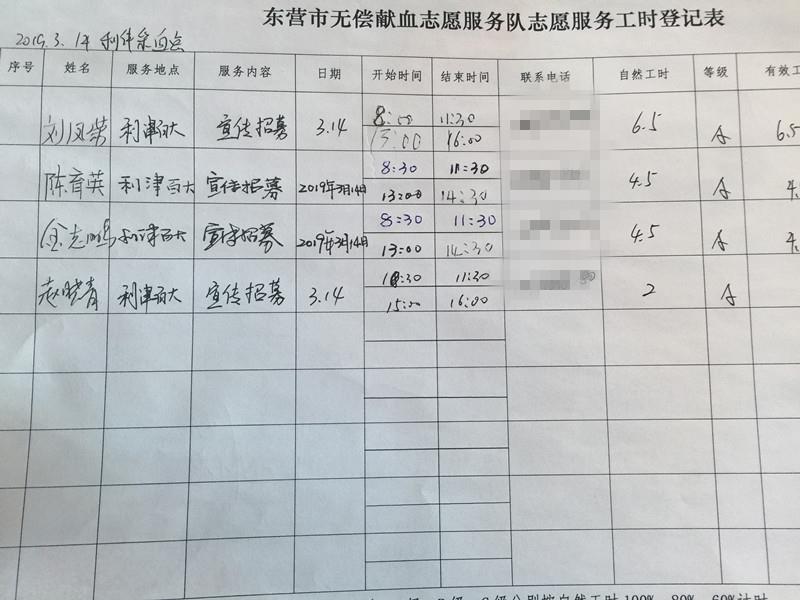 东营市无偿献血志愿服务队志愿服务工时登记表
2019.3.14 利津采血点
序号 姓名 服务地点 服务内容 日期 开始时间 结束时间 联系电话 自然工时 等级 有效工
刘凤荣 利津百大 宣传招募 3.14 8:00 11:30 6.5 A 6.5
13:00 16:00
陈育英 利津百大 宣传招募 2019年3月14日 8:30 11:30 4.5 A 4.
13:00 14:30
金志鹏 利津百大 宣传招募 2019年3月14日 8:30 11:30 4.5 A 4.
13:00 14:30
赵晓青 利津百大 宣传招募 3.14 10:30 11:30 2 A
15:00 16:00
级分别按自然工时100%、80%、60%计时